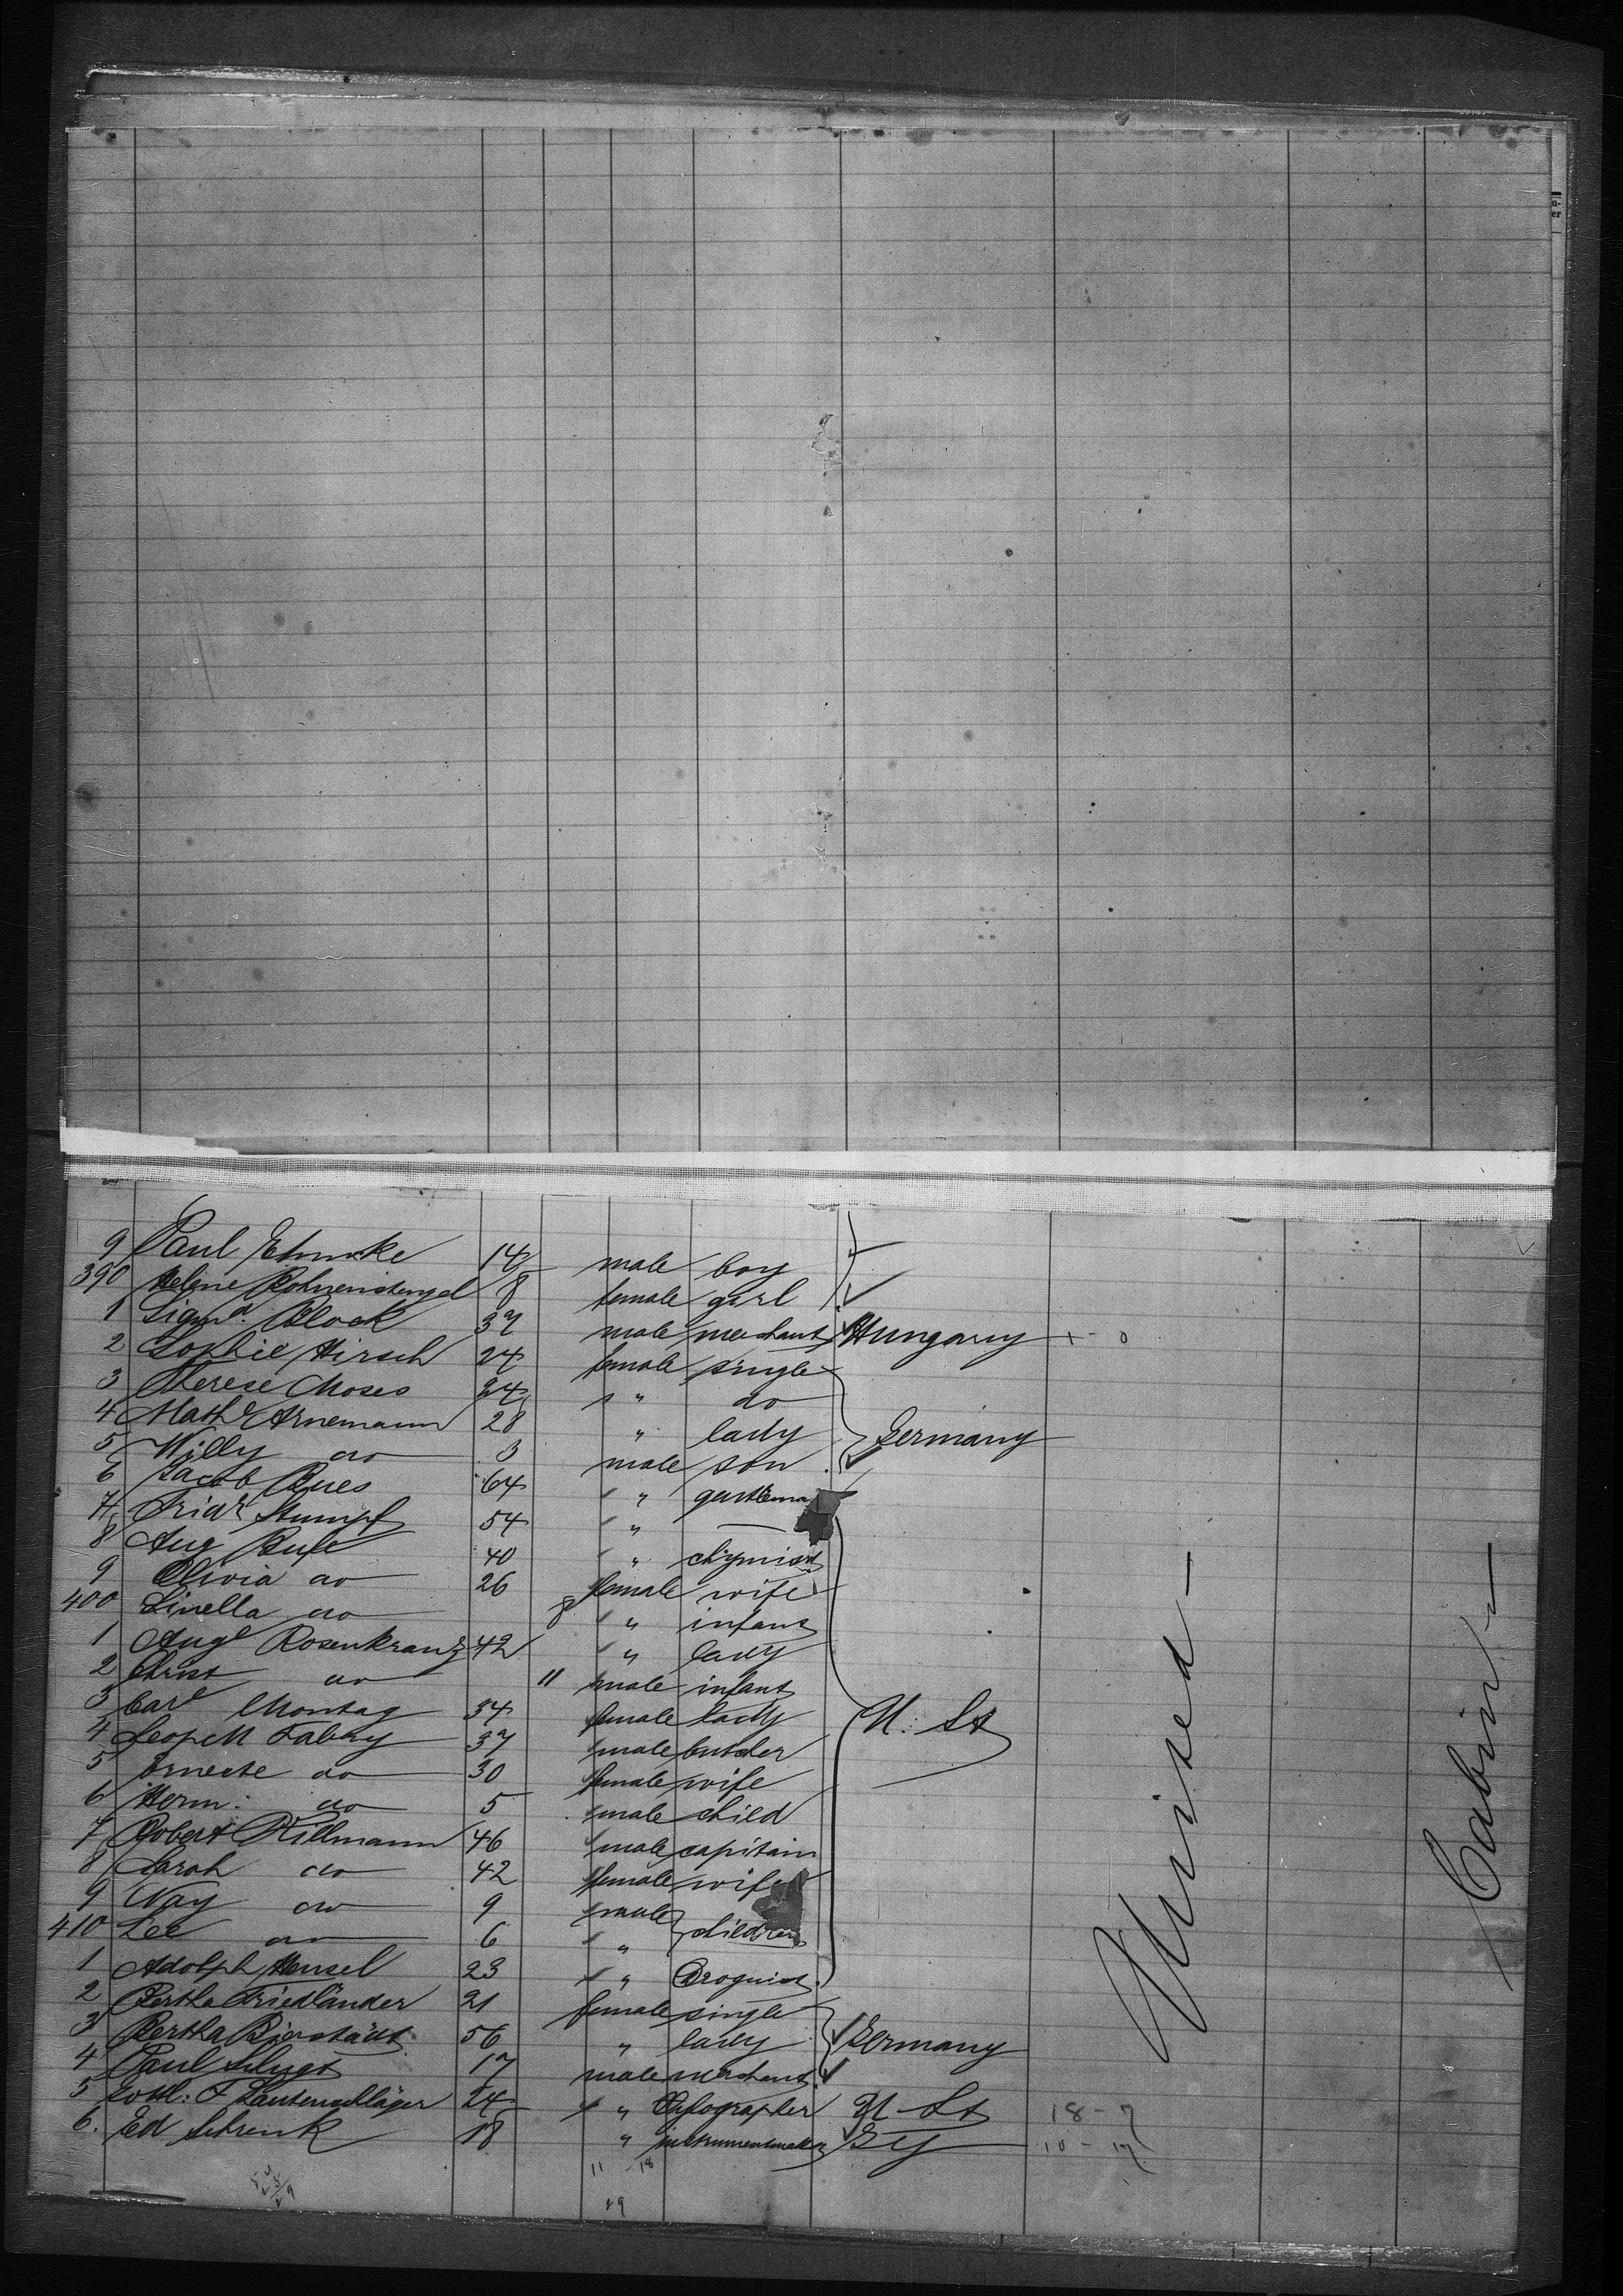 9 Paul Ehmke 14 male boy
390 Helene Rohnenstengel 8 female girl
1 Sigmd. Block 37 male merchant Hungary
2 Sophie Hirsch 24 female single
3 Therese Moses 24 " do
4 Mathe Arnemann 28 " lady Germany
5 Willy do 3 male son
6 Jacob Rues 64 " gentlema
7 Fridr Stumpf 54 " —
8 Aug 40 " chymist
9 Olivia do 26 female wife
400 Linella do 8 " infant
1 Auge Rosenkranz 42 " lady
2 Christ do 11 male infant
3 Carl Montag 34 female lady U. St
4 Leop M Fabry 37 male butcher
5 Erneste do 30 female wife
6 Herm: do 5 male child
7 Robert Hillmann 46 male capitain
8 Sarah do 42 female wife
9 May do 9 male children
410 Lee do 6 "
1 Adolph Hensel 23 " Droguist
2 Bertha Friedländer 21 female single
3 Bertha Bierstädt 56 " lady Germany
4 Paul 17 male merchant
5 Gottl: F Lautenschläger 24 " Typographer U. St 18-7
6. Ed Schrenk 18 " instrumentmaker Gy 10-17
11 - 18
29
Cabin—